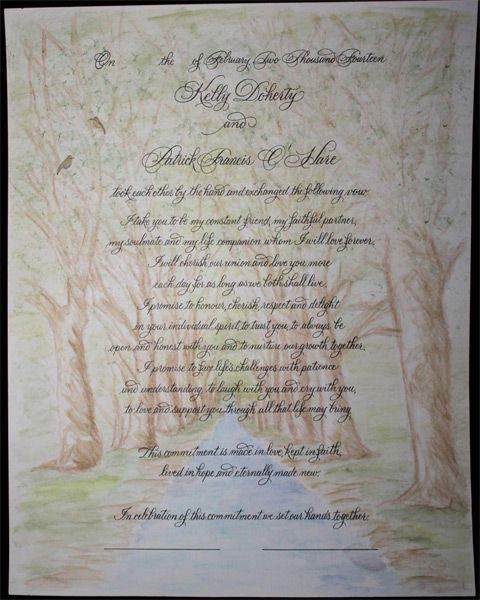 On the of February Two Thousand Fourteen
Kelly Doherty
and
Patrick Francis O'Hare
took each other by the hand and exchanged the following vow:
I take you to be my constant friend, my faithful partner,
my soulmate and my life companion whom I will love forever.
I will cherish our union and love you more
each day for as long as we both shall live.
I promise to honour, cherish, respect and delight
in your individual spirit, to trust you, to always be
open and honest with you and to nurture our growth together.
I promise to face life's challenges with patience
and understanding, to laugh with you and cry with you,
to love and support you through all that life may bring.
This commitment is made in love, kept in faith,
lived in hope and eternally made new.
In celebration of this commitment we set our hands together: